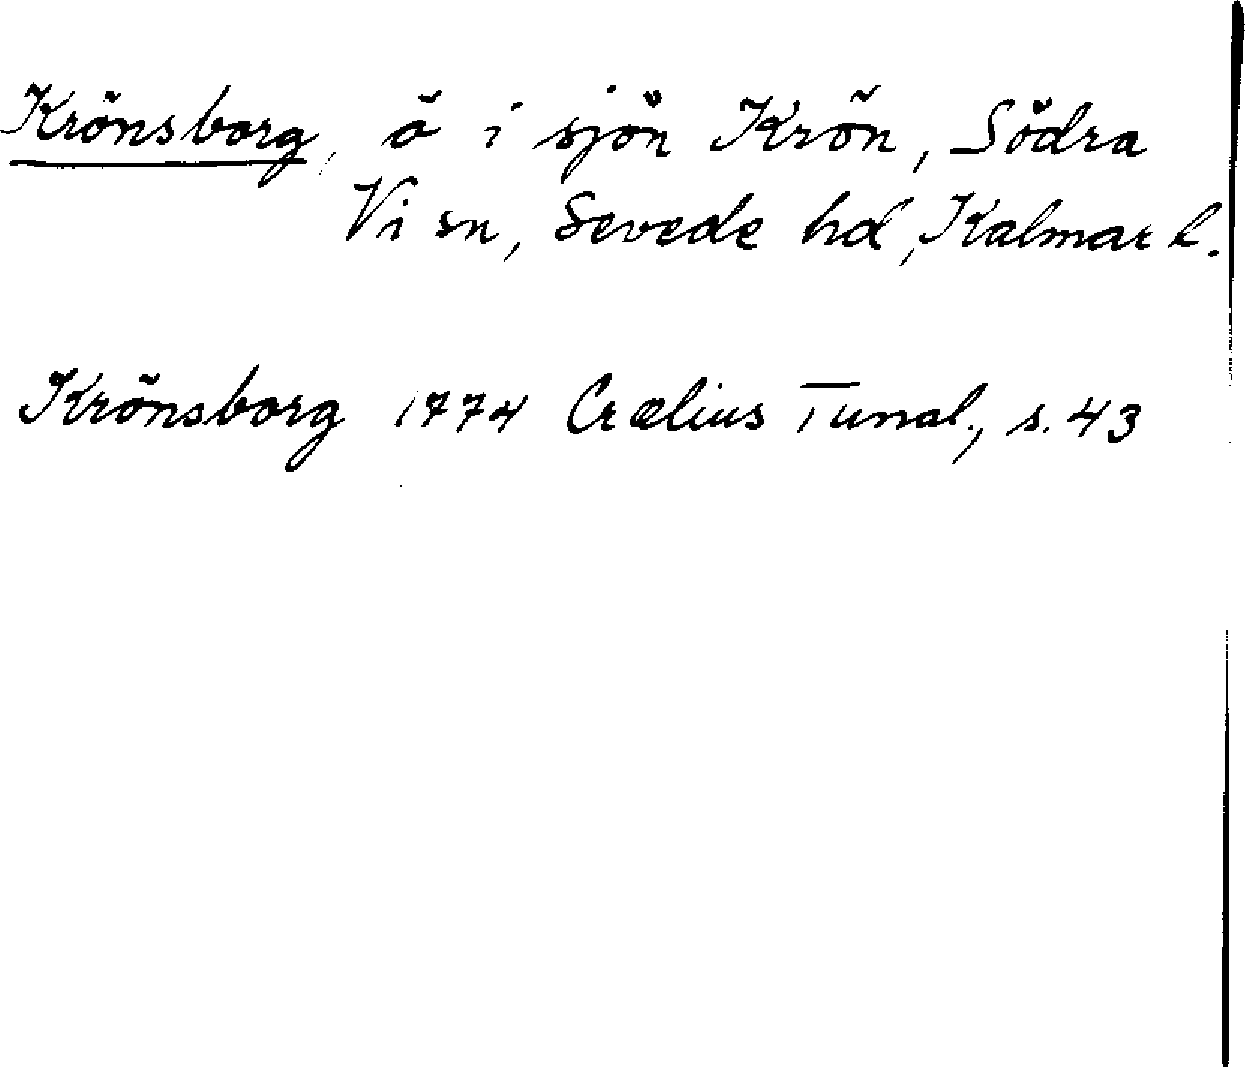 Krönsborg, ö i sjön Krön, Södra
Vi sn, Sevede hd, Kalmar l.
Krönsborg 1774 Crælius Tunal., s. 43